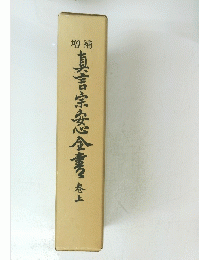 増補
真言宗安心全書
巻上